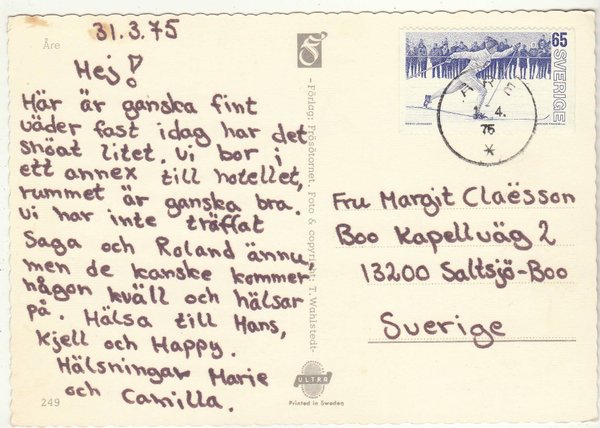 Åre
31.3.75
Hej!
Här är ganska fint
väder fast idag har det
snöat litet. Vi bor i
ett annex till hotellet,
rummet är ganska bra.
Vi har inte träffat
Saga och Roland ännu,
men de kanske kommer
någon kväll och hälsar
på. Hälsa till Hans,
Kjell och Happy.
Hälsningar Marie
och Camilla.
249
-Förlag: Frösötornet. Foto & copyright: T. Wahlstedt-
ULTRA
Printed in Sweden
65
SVERIGE
ÅRE
4.
75
Fru Margit Claësson
Boo Kapellväg 2
13200 Saltsjö-Boo
Sverige